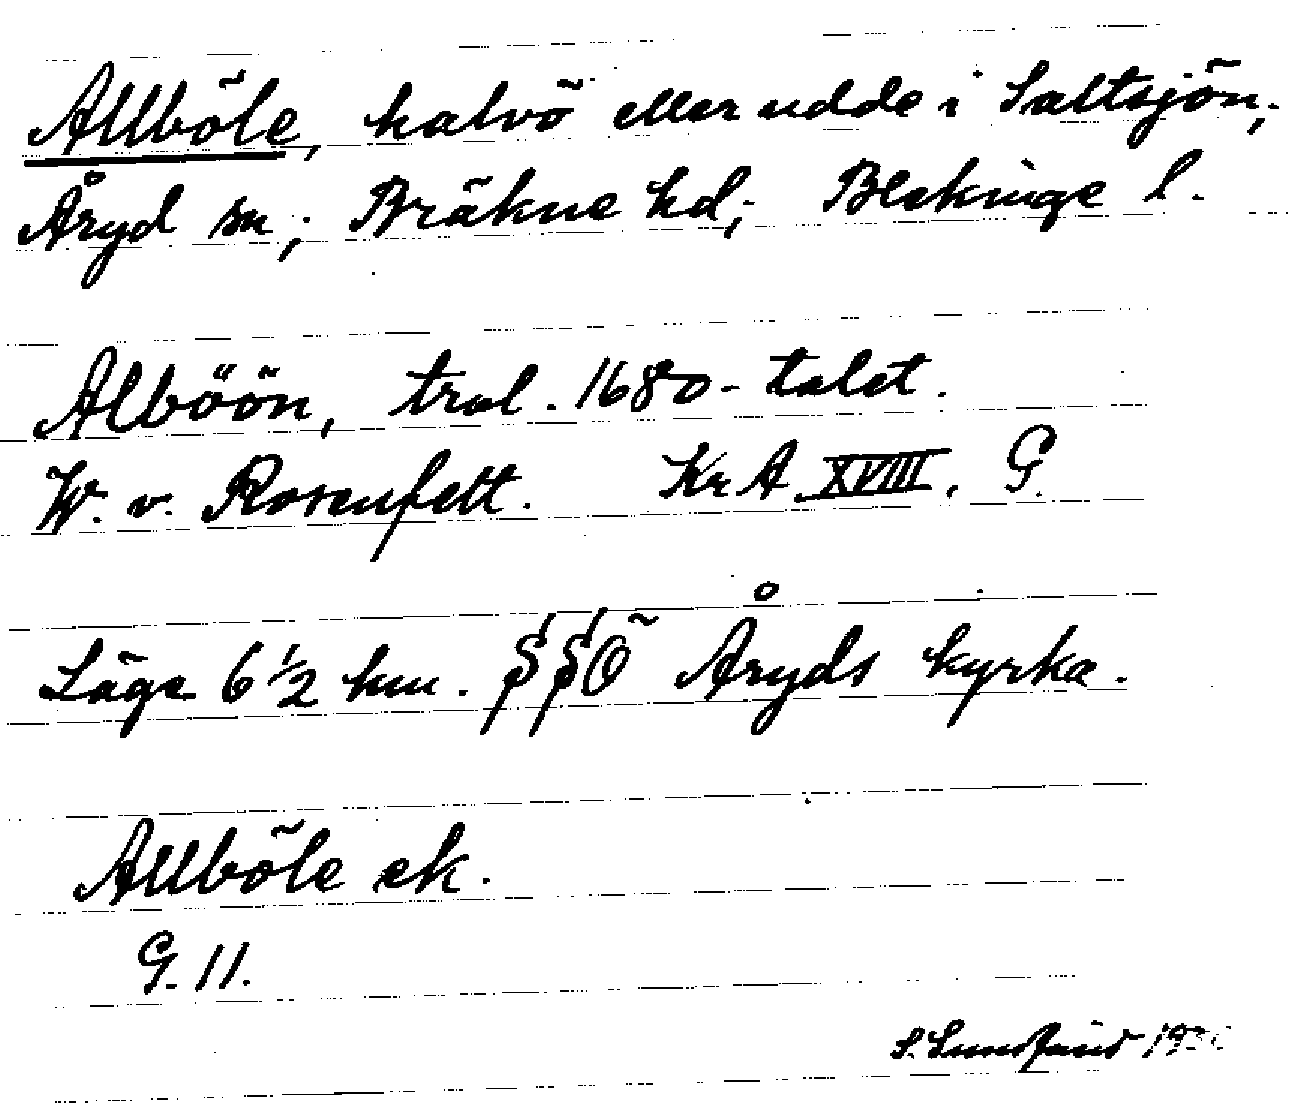 Allböle, halvö eller udde i Saltsjön;
Åryd sn; Bräkne hd; Blekinge l.
Alböön, trol. 1680-talet.
W. v. Rosenfelt. KrA. XVIII, G.
Läge 6 1/2 km. SSÖ Åryds kyrka.
Allböle ek.
G. 11.
S.